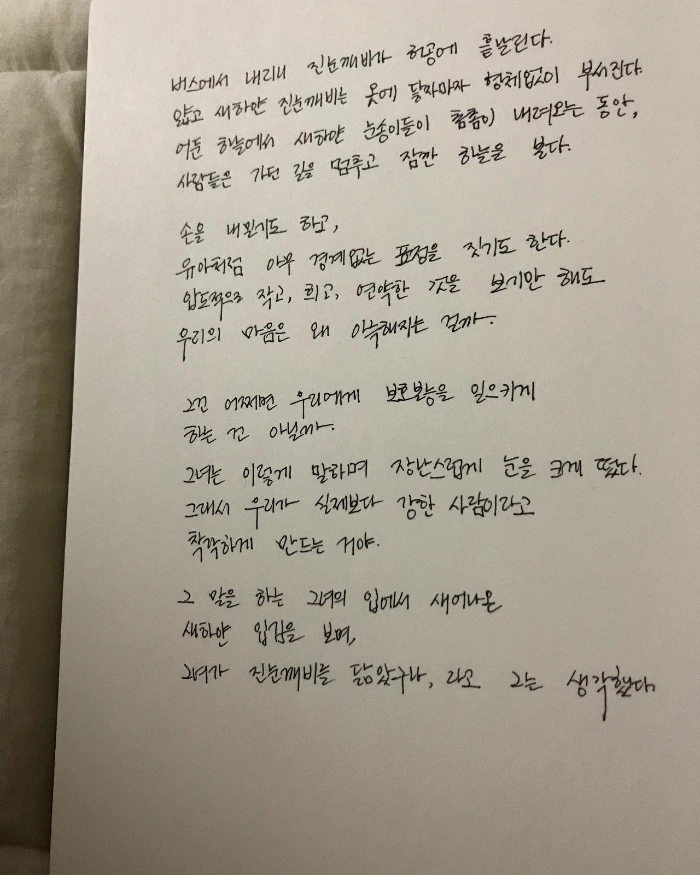 버스에서 내리니 진눈깨비가 허공에 흩날린다.
얇고 새하얀 진눈깨비는 옷에 닿자마자 형체없이 부서진다.
어둔 하늘에서 새하얀 눈송이들이 촘촘이 내려오는 동안,
사람들은 가던 길을 멈투고 잠깐 하늘을 본다.
손을 내밀기도 하고,
유아처럼 아무 경계없는 표정을 짓기도 한다.
압도적으로 작고, 희고, 연약한 것을 보기만 해도
우리의 마음은 왜 아늑해지는 걸까.
그건 어쩌면 우리에게 보호본능을 일으키게
하는 건 아닐까.
그녀는 이렇게 말하며 장난스럽게 눈을 크게 떴다.
그래서 우리가 실제보다 강한 사람이라고
착각하게 만드는 거야.
그 말을 하는 그녀의 입에서 새어나온
새하얀 입김을 보며,
그녀가 진눈깨비를 닮았구나, 라고 그는 생각했다.